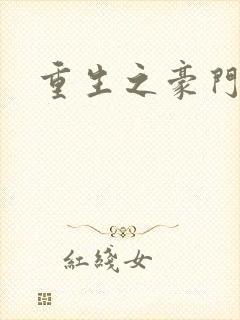 重生之豪門
紅綫女